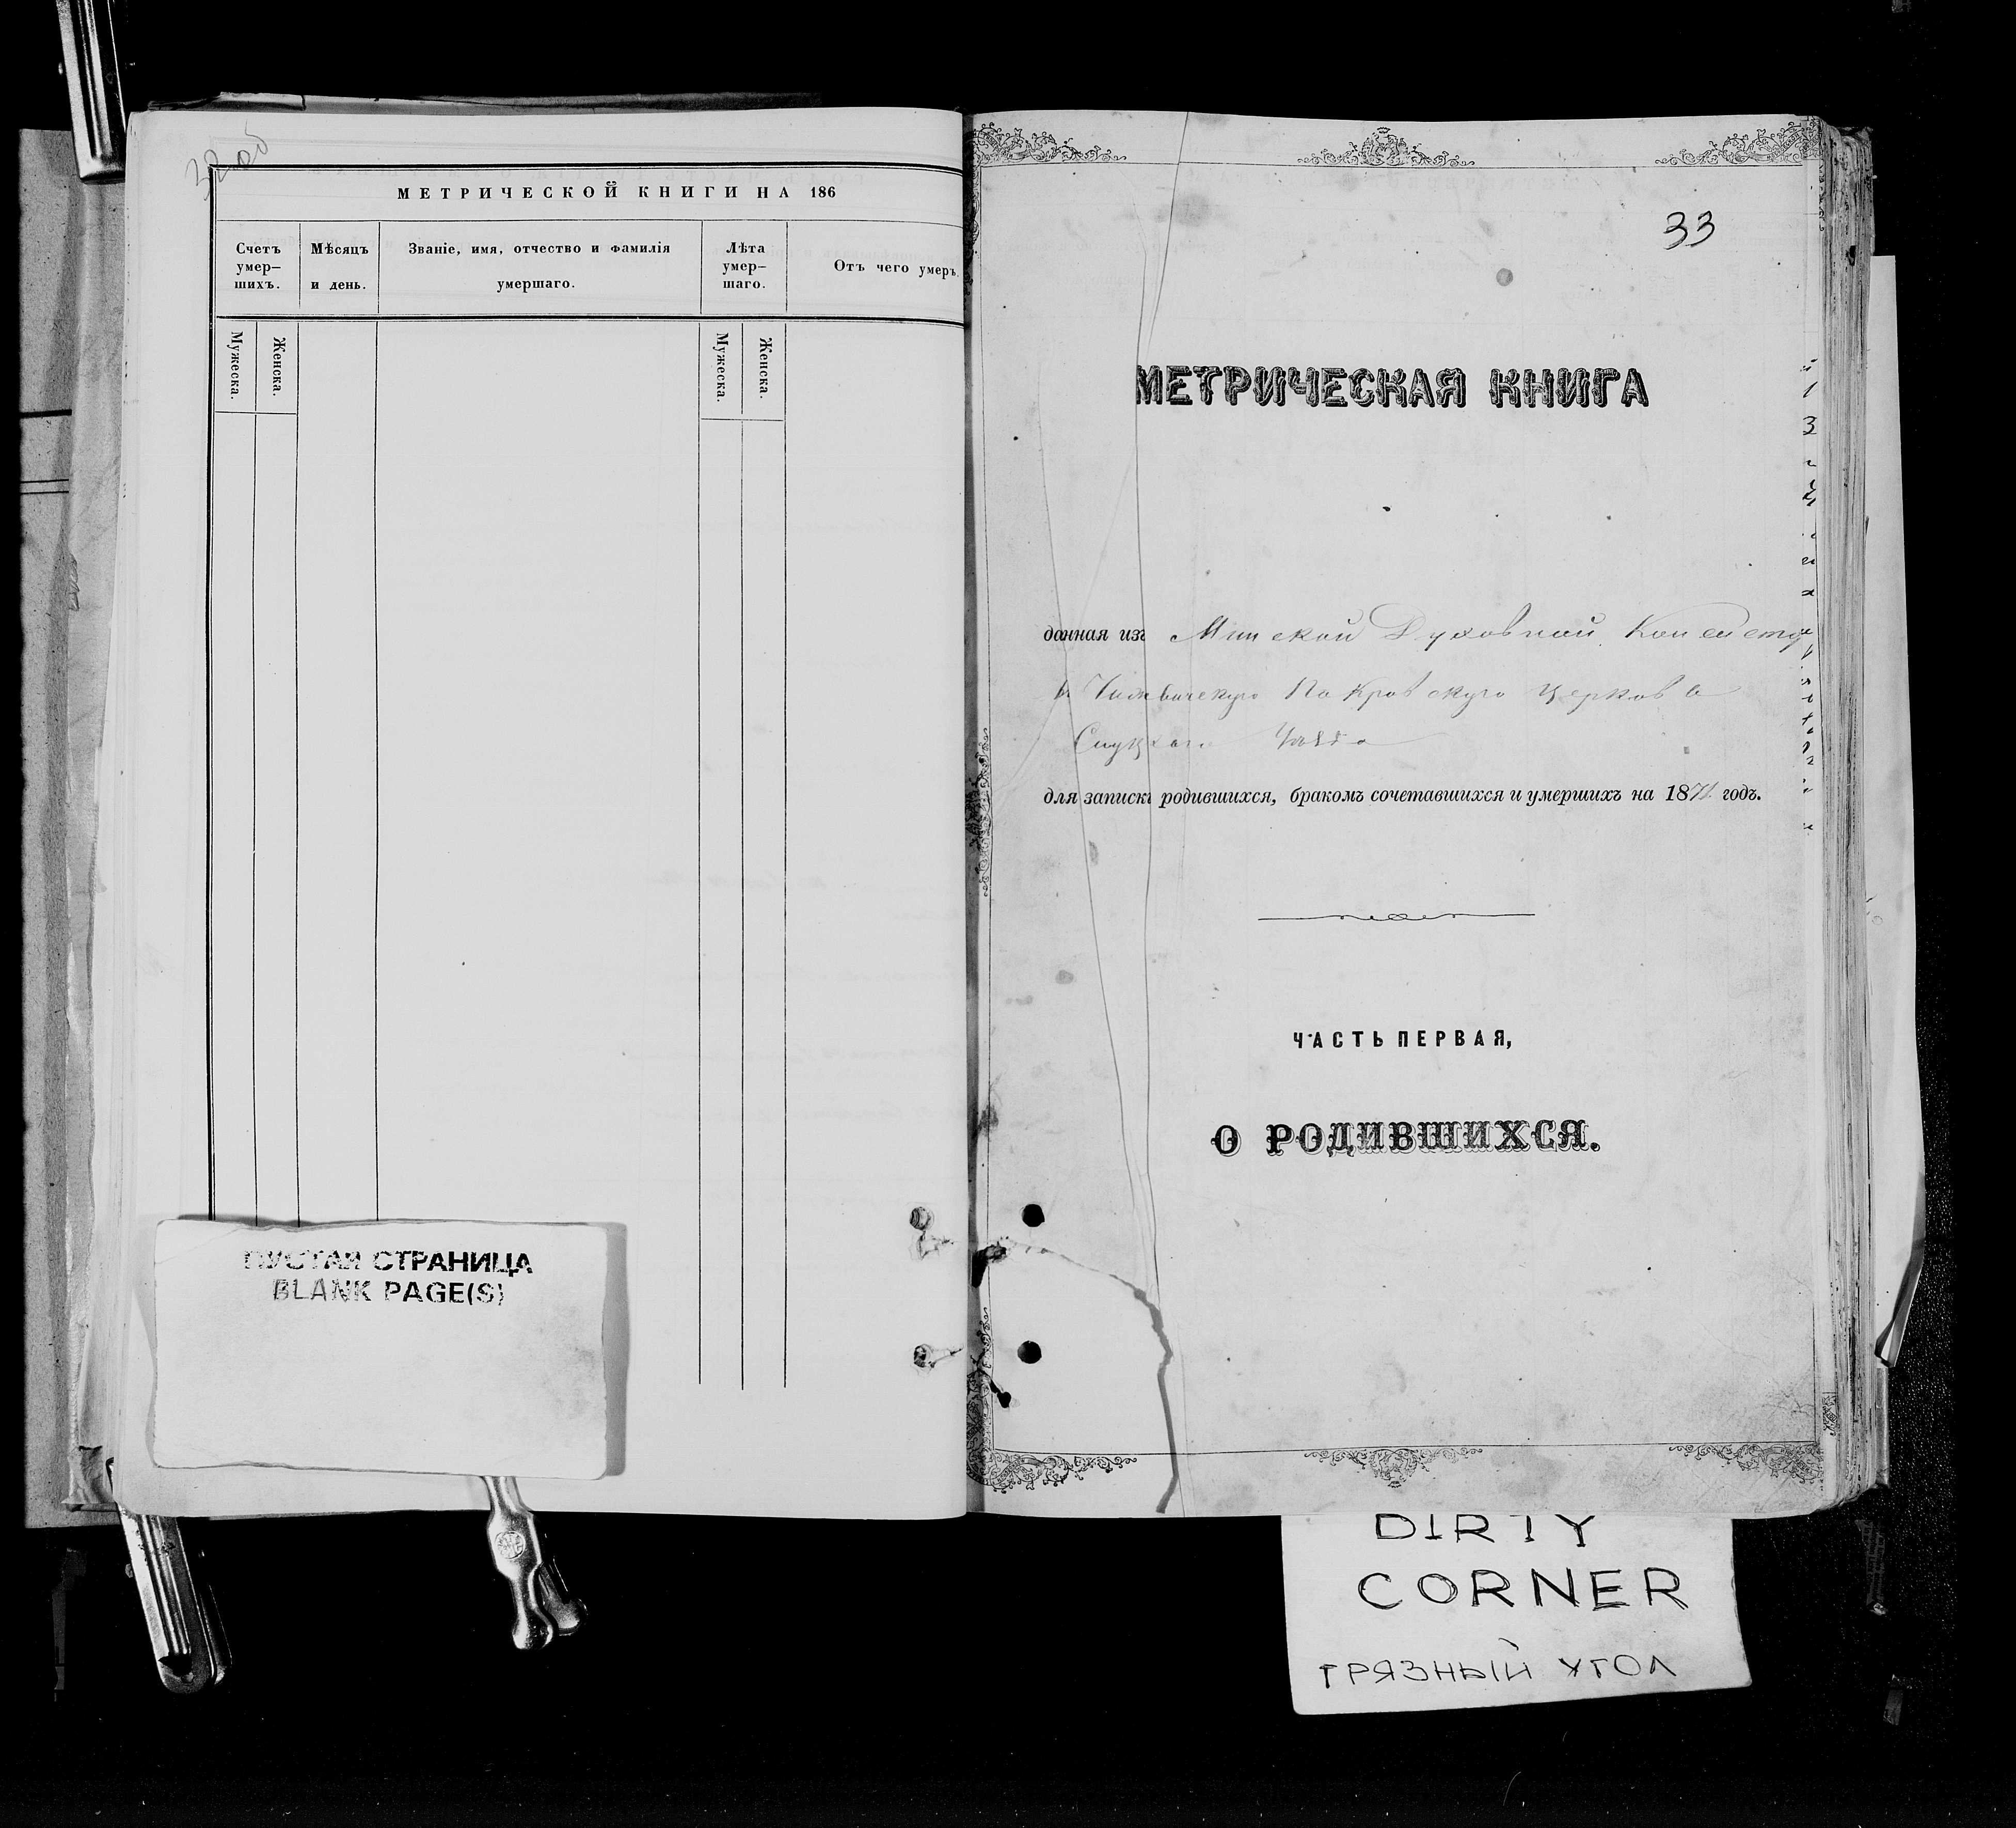 32 об
МЕТРИЧЕСКОЙ КНИГИ НА 186
Счетъ умер-
шихъ.
Мѣсяцъ
и день.
Званіе, имя, отчество и фамилія
умершаго.
Лѣта
умер-
шаго.
Отъ чего умеръ.
Мужеска.
Женска.
Мужеска.
Женска.
ПУСТАЯ СТРАНИЦА
BLANK PAGE(S)
33
МЕТРИЧЕСКАЯ КНИГА
данная изъ Минской Духовной Консисто
Покровскую церковь
Слуцкаго Уѣзда
для записки родившихся, бракомъ сочетавшихся и умершихъ на 1871 годъ.
ЧАСТЬ ПЕРВАЯ,
О РОДИВШИХСЯ.
DIRTY
CORNER
ГРЯЗНЫЙ УГОЛ